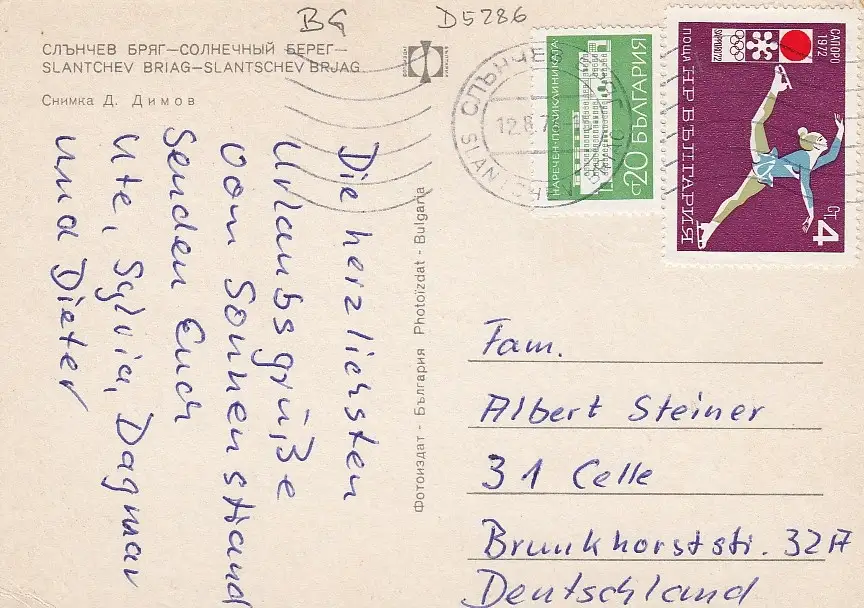 BG
D5286
СЛЪНЧЕВ БРЯГ—СОЛНЕЧНЫЙ БЕРЕГ—
SLANTCHEV BRIAG—SLANTSCHEV BRJAG
Снимка Д. Димов
Die herzlichsten
Urlaubsgrüße
vom Sonnenstrand
senden Euch
Ute, Sylvia, Dagmar
und Dieter
Фотоиздат - България Photoïzdat - Bulgaria
СЛЪНЧЕВ
12.8.7
SLANTCHEV
НАРЕЧЕН·ПОЛИКЛИНИКАТА
СТ20 БЪЛГАРИЯ
САПОРО
1972
SAPPORO'72
ПОЩА НР БЪЛГАРИЯ
СТ. 4
Fam.
Albert Steiner
31 Celle
Brunkhorststr. 32A
Deutschland